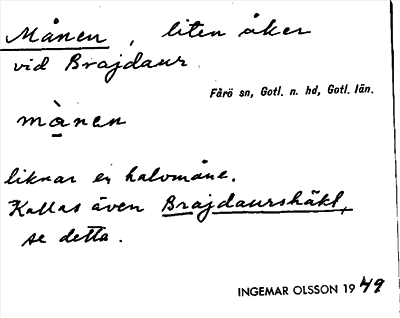 Månen, liten åker
vid Brajdaur
Fårö sn, Gotl. n. hd, Gotl. län.
mànen
liknar en halvmåne.
Kallas även Brajdaurshäkl,
se detta.
INGEMAR OLSSON 1949